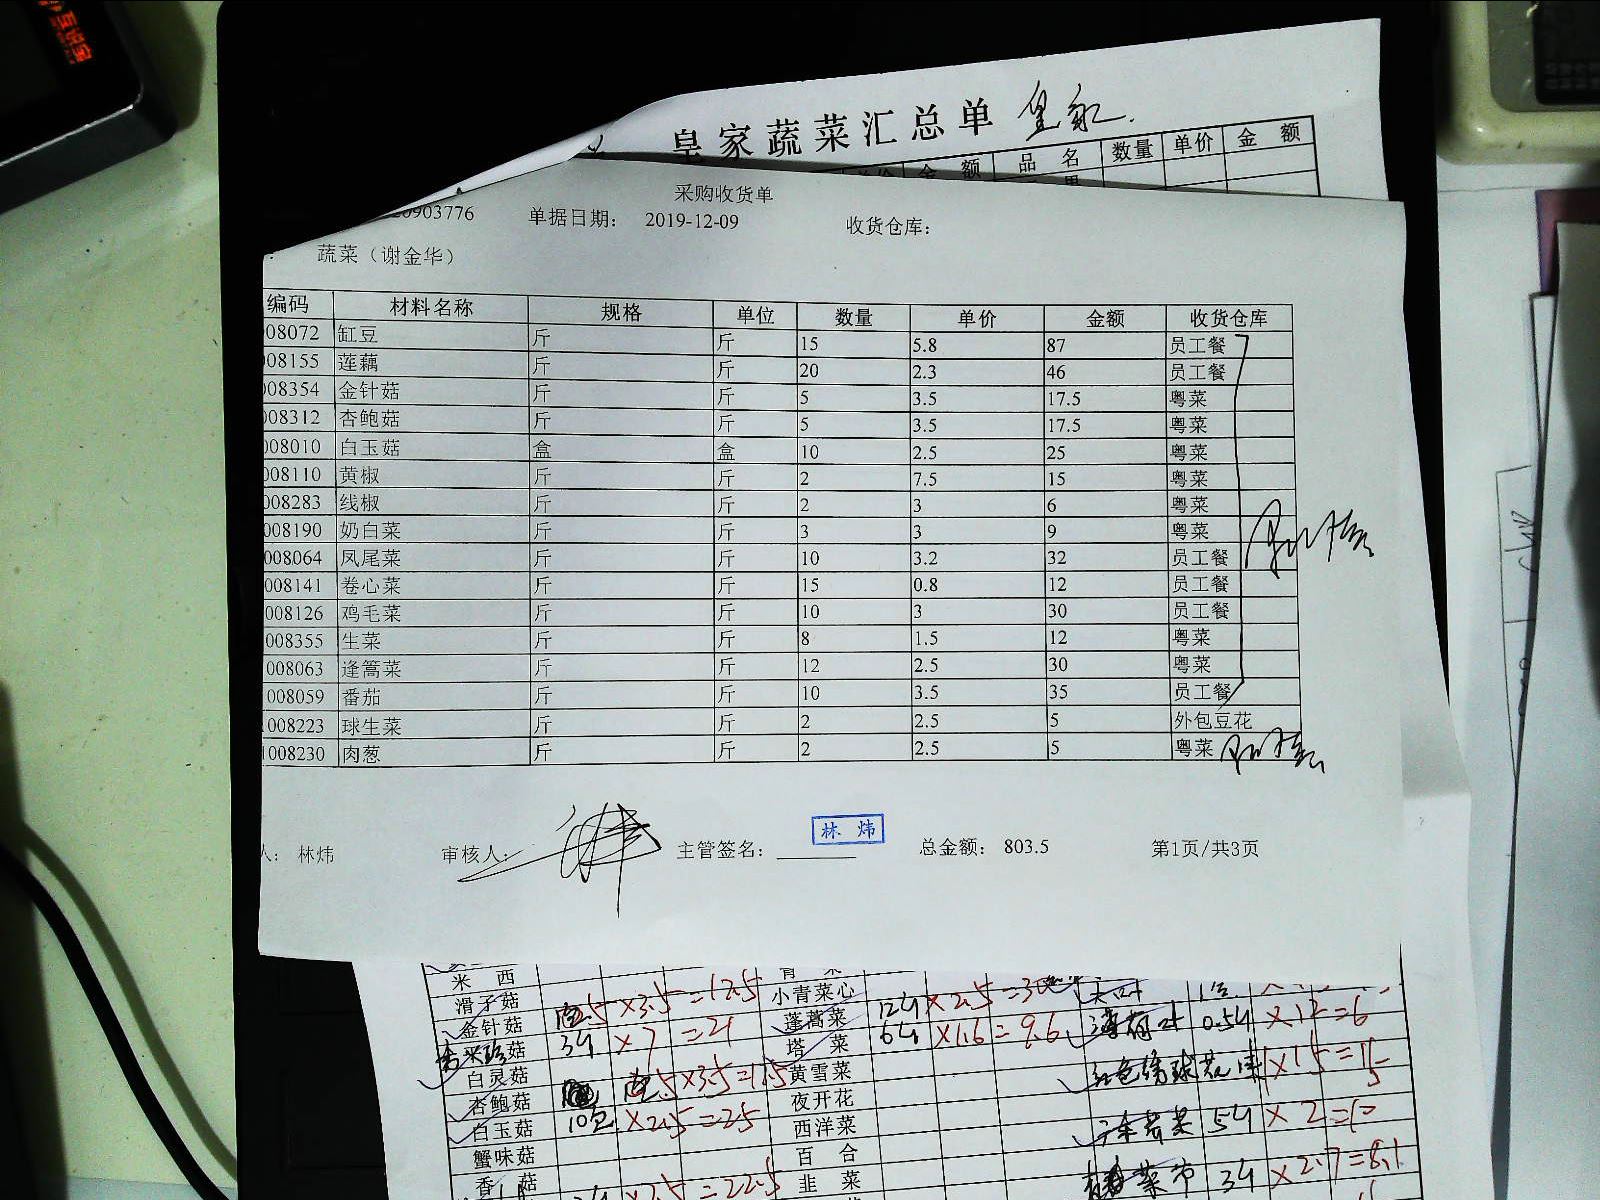 皇家蔬菜汇总单 皇家
金 额 品 名 数量 单价 金 额
采购收货单
20903776 单据日期： 2019-12-09 收货仓库：
蔬菜（谢金华）
编码 材料名称 规格 单位 数量 单价 金额 收货仓库
08072 缸豆 斤 斤 15 5.8 87 员工餐
008155 莲藕 斤 斤 20 2.3 46 员工餐
008354 金针菇 斤 斤 5 3.5 17.5 粤菜
008312 杏鲍菇 斤 斤 5 3.5 17.5 粤菜
008010 白玉菇 盒 盒 10 2.5 25 粤菜
008110 黄椒 斤 斤 2 7.5 15 粤菜
008283 线椒 斤 斤 2 3 6 粤菜
008190 奶白菜 斤 斤 3 3 9 粤菜
008064 凤尾菜 斤 斤 10 3.2 32 员工餐
008141 卷心菜 斤 斤 15 0.8 12 员工餐
008126 鸡毛菜 斤 斤 10 3 30 员工餐
008355 生菜 斤 斤 8 1.5 12 粤菜
008063 逢篙菜 斤 斤 12 2.5 30 粤菜
008059 番茄 斤 斤 10 3.5 35 员工餐
008223 球生菜 斤 斤 2 2.5 5 外包豆花
008230 肉葱 斤 斤 2 2.5 5 粤菜
人： 林炜 审核人： 主管签名： 林 炜 总金额： 803.5 第1页/共3页
米 西
滑子菇 小青菜心
金针菇 ×3.5=17.5 蓬蒿菜 12斤 ×2.5=30
菇 3斤 ×7 =21 塔 菜 6斤 ×1.6=9.6 薄荷叶 0.5斤 ×12=6
白灵菇 黄雪菜 ×15=15
杏鲍菇 ×3.5=17.5 夜开花
白玉菇 10包 ×2.5=25 西洋菜 5斤 ×2=10
蟹味菇 百 合
香 菇 ×7.5=22.5 韭 菜 3斤 ×2.7=8.1